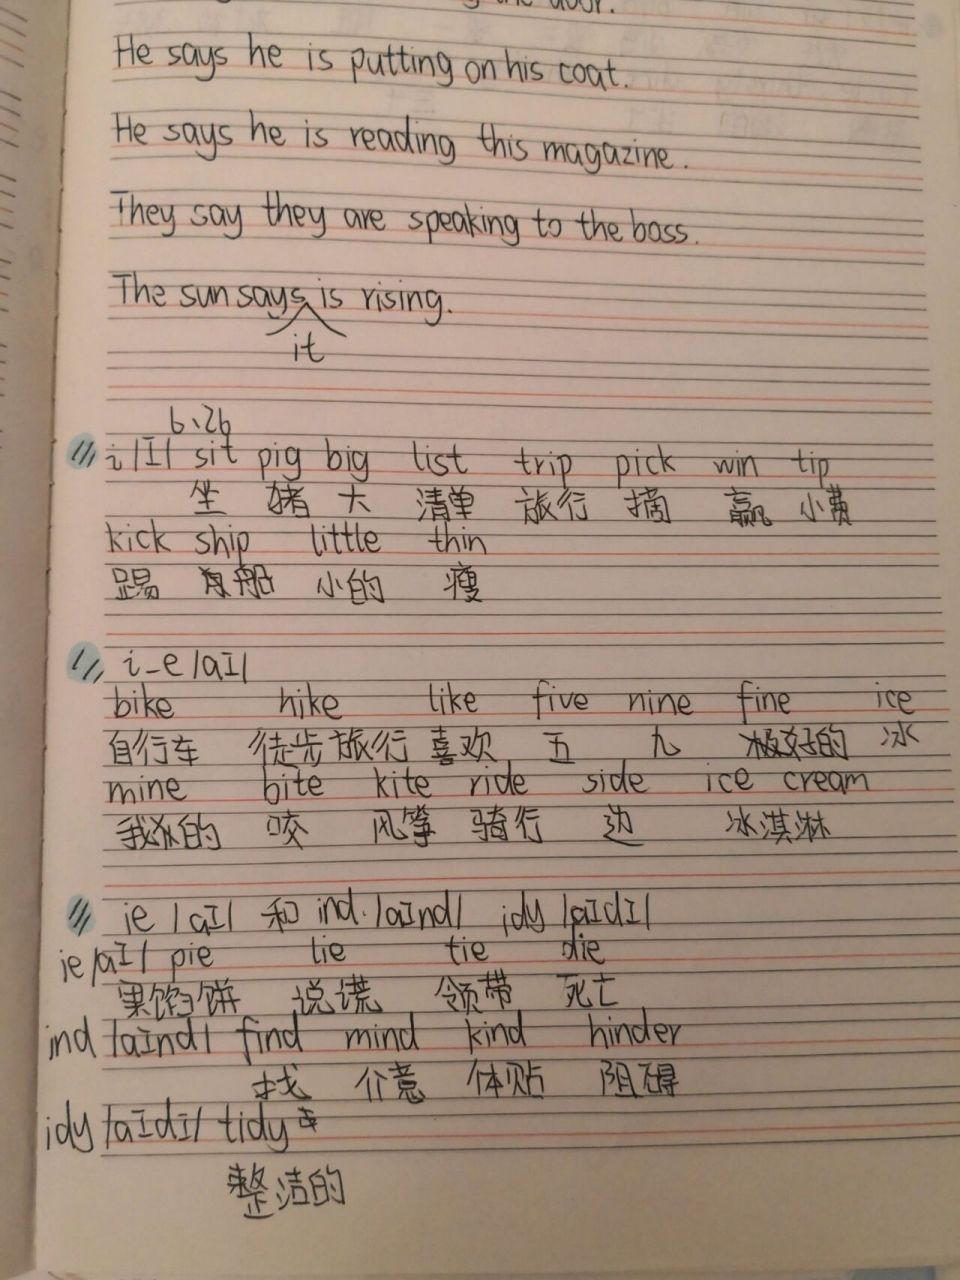 the door.
He says he is putting on his coat.
He says he is reading this magazine.
They say they are speaking to the boss.
The sun says is rising.
it
6、26
i /I/ sit pig big list trip pick win tip
坐 猪 大 清单 旅行 摘 赢 小费
kick ship little thin
踢 船 小的 瘦
i_e /aI/
bike hike like five nine fine ice
自行车 徒步旅行 喜欢 五 九 极好的 冰
mine bite kite ride side ice cream
我的 咬 风筝 骑行 边 冰淇淋
ie /aI/ 和 ind. /aInd/ idy /aIdI/
ie /aI/ pie lie tie die
果馅饼 说谎 领带 死亡
ind /aInd/ find mind kind hinder
找 介意 体贴 阻碍
idy /aIdI/ tidy
整洁的